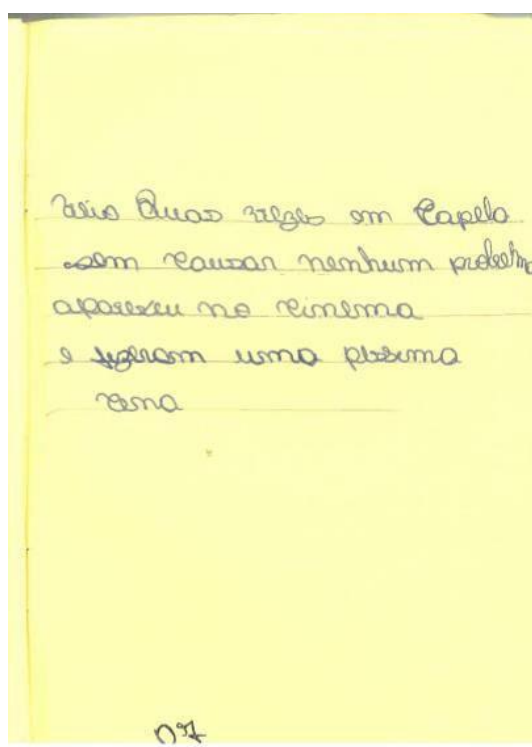 Veio Duas vezes em Capela
sem causar nenhum problema
apareceu no cinema
e fizeram uma pessima
cena
nº7